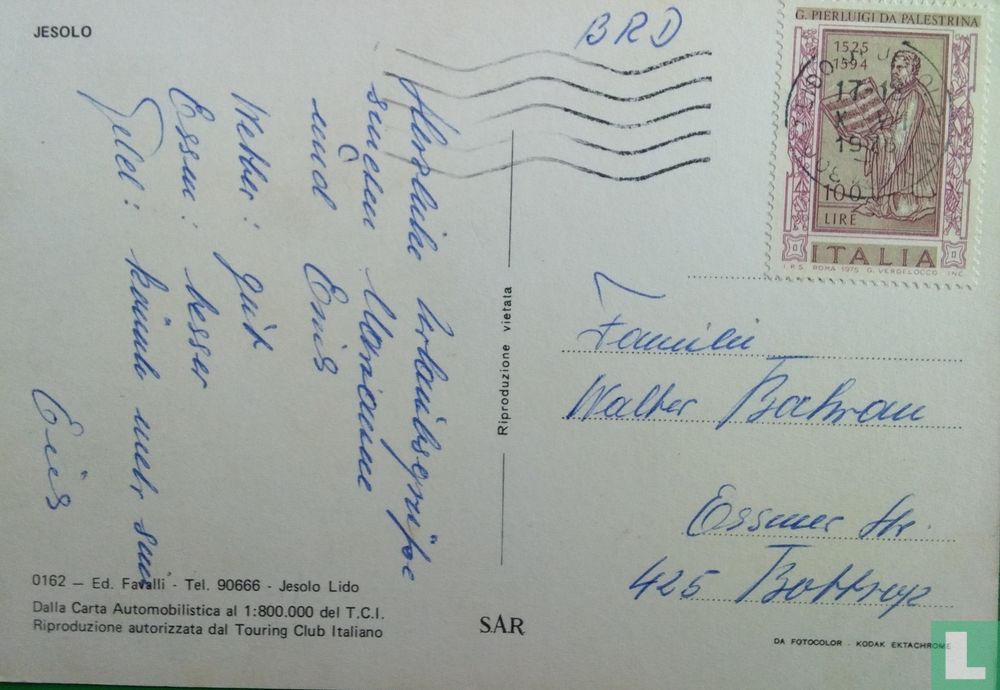 JESOLO
BRD
G. PIERLUIGI DA PALESTRINA
1525
1594
100
LIRE
ITALIA
I.P.S. ROMA 1975 G. VERDELOCCO INC.
Herzliche Urlaubsgrüße
senden Marianne
und Enis
Wetter: gut
Essen: besser
Geld: kaum mehr
Enis
Riproduzione vietata
Familie
Walter
Essener Str.
425 Bottrop
0162 — Ed. Favalli - Tel. 90666 - Jesolo Lido
Dalla Carta Automobilistica al 1:800.000 del T.C.I.
Riproduzione autorizzata dal Touring Club Italiano
SAR
DA FOTOCOLOR - KODAK EKTACHROME
L